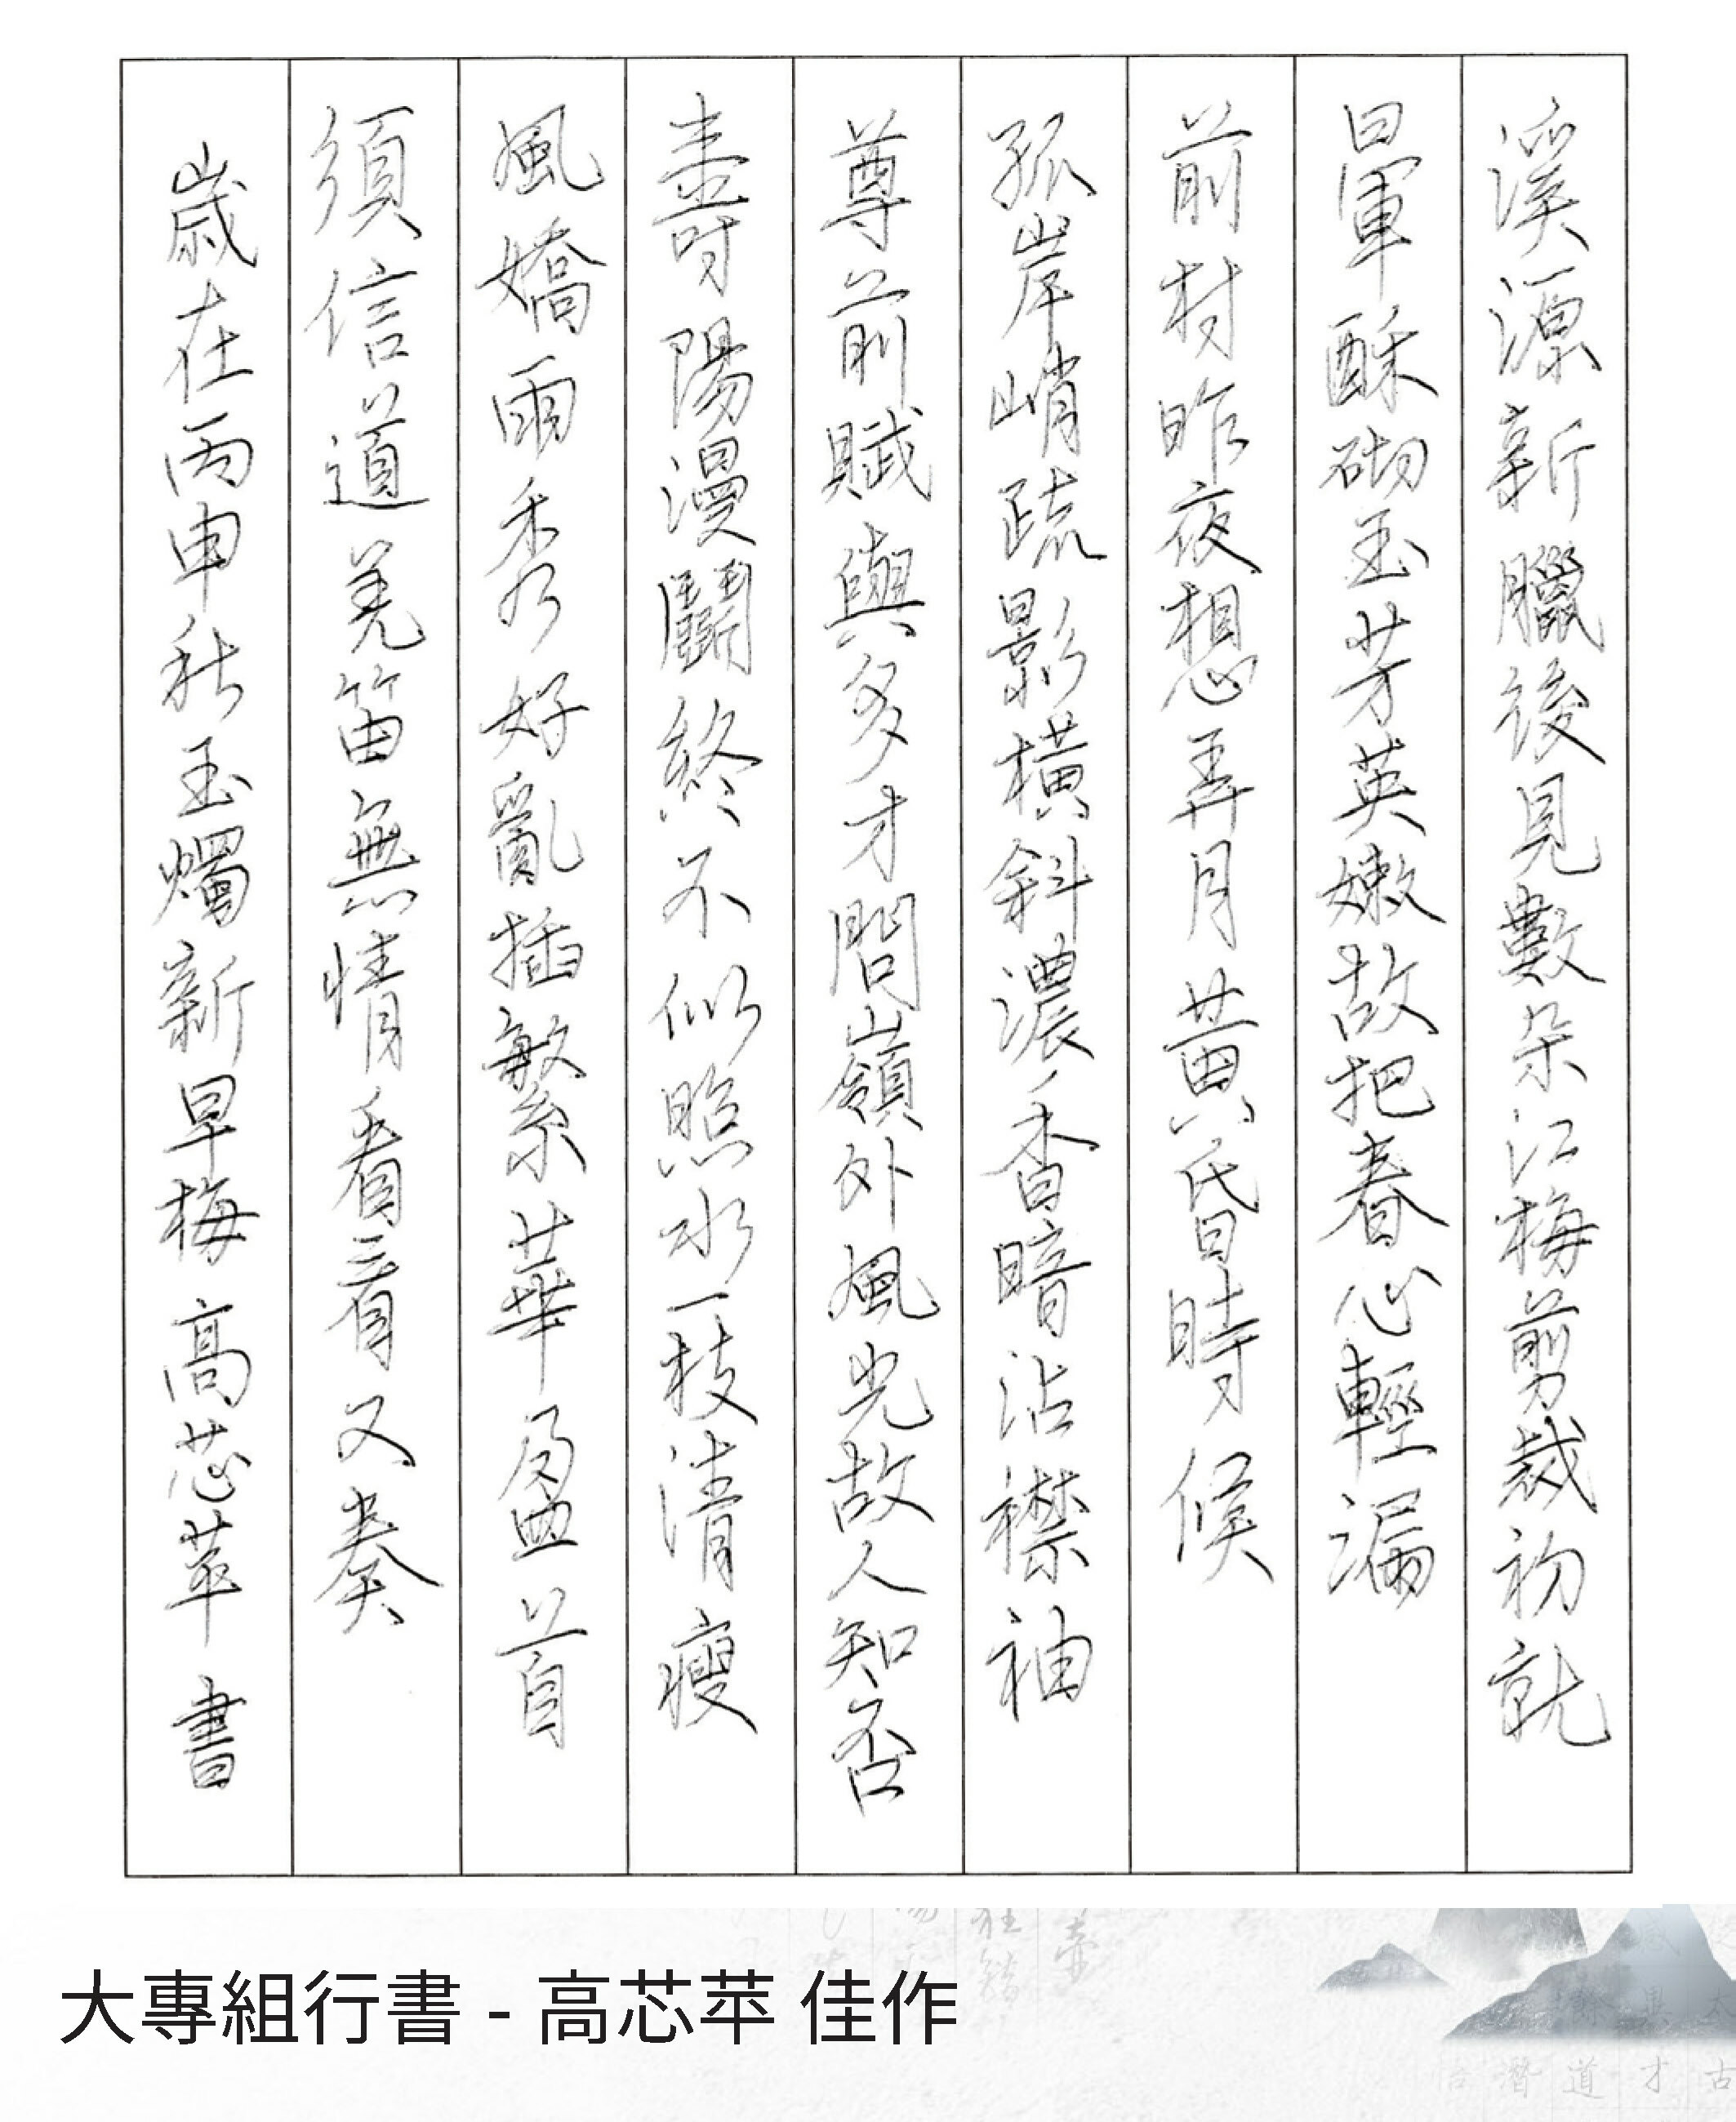 溪源新臘後見數朵江梅剪裁初就
暈酥砌玉芳英嫩故把春心輕漏
前村昨夜想弄月黃昏時候
孤岸峭疏影橫斜濃香暗沾襟袖
尊前賦與多才問嶺外風光故人知否
壽陽漫鬬終不似照水一枝清瘦
風嬌雨秀好亂插繁華盈首
須信道羌笛無情看看又奏
歲在丙申秋玉燭新早梅高芯苹書
大專組行書 - 高芯苹 佳作